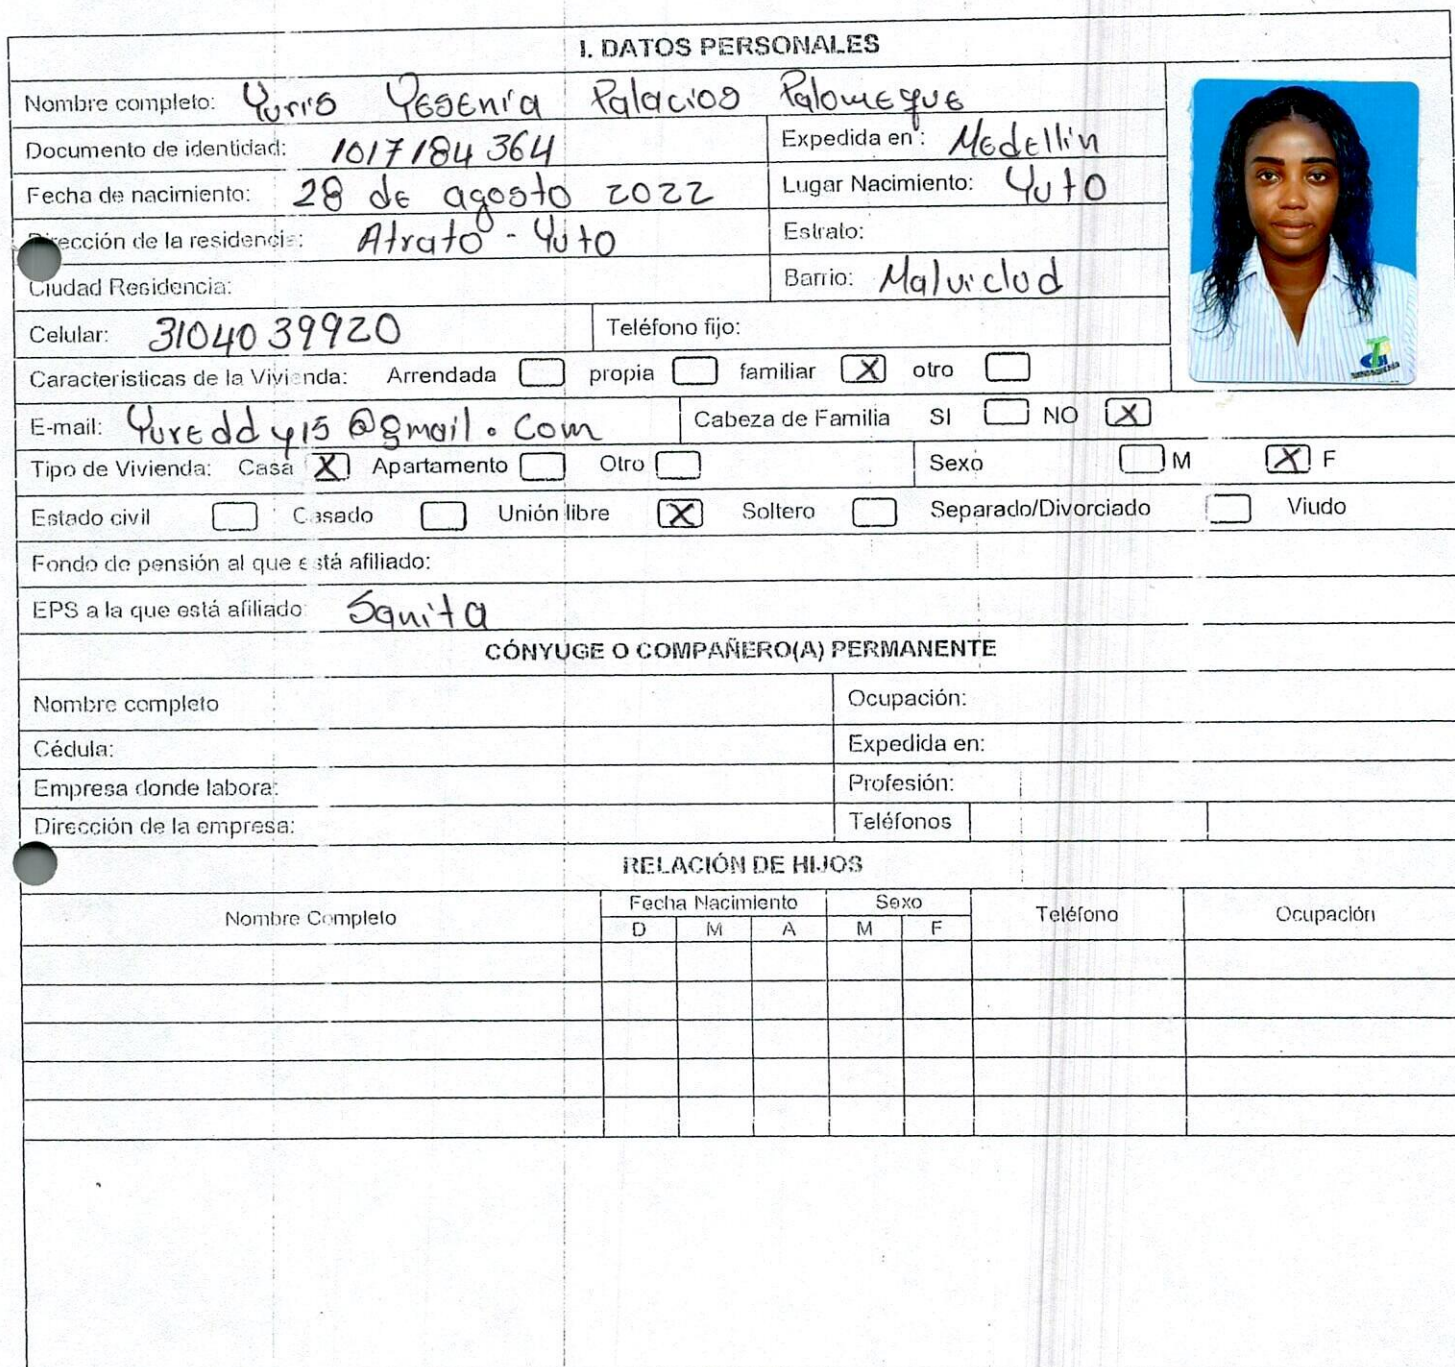 I. DATOS PERSONALES
Nombre completo: Yuris Yesenia Palacios Palomeque
Documento de identidad: 1017184364 Expedida en: Medellin
Fecha de nacimiento: 28 de agosto 2022 Lugar Nacimiento: Yuto
Dirección de la residencia: Atrato - Yuto Estrato:
Ciudad Residencia: Barrio: Malviclud
Celular: 3104039920 Teléfono fijo:
Características de la Vivienda: Arrendada propia familiar X otro
E-mail: Yureddy15@gmail.com Cabeza de Familia SI NO X
Tipo de Vivienda: Casa X Apartamento Otro Sexo M X F
Estado civil Casado Unión libre X Soltero Separado/Divorciado Viudo
Fondo de pensión al que está afiliado:
EPS a la que está afiliado: Sanita
CÓNYUGE O COMPAÑERO(A) PERMANENTE
Nombre completo Ocupación:
Cédula: Expedida en:
Empresa donde labora: Profesión:
Dirección de la empresa: Teléfonos
RELACIÓN DE HIJOS
Nombre Completo Fecha Nacimiento Sexo Teléfono Ocupación
D M A M F